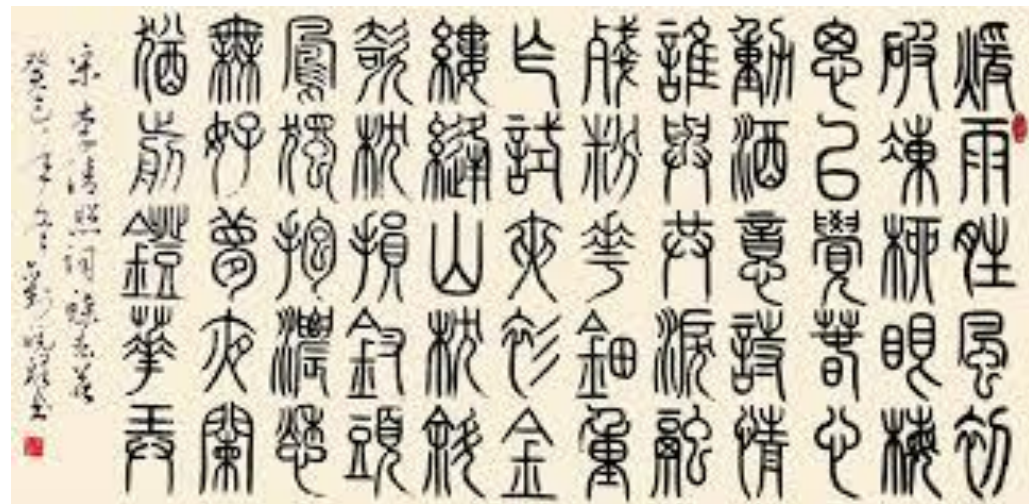 煖雨晴風初
破凍柳眼梅
腮已覺春心
動酒意詩情
誰與共淚融
殘粉花鈿重
乍試夾衫金
縷縫山枕斜
欹枕損釵頭
鳳獨抱濃愁
無好夢夜闌
猶剪燈華弄
宋李清照詞蝶恋花
癸巳年冬劉